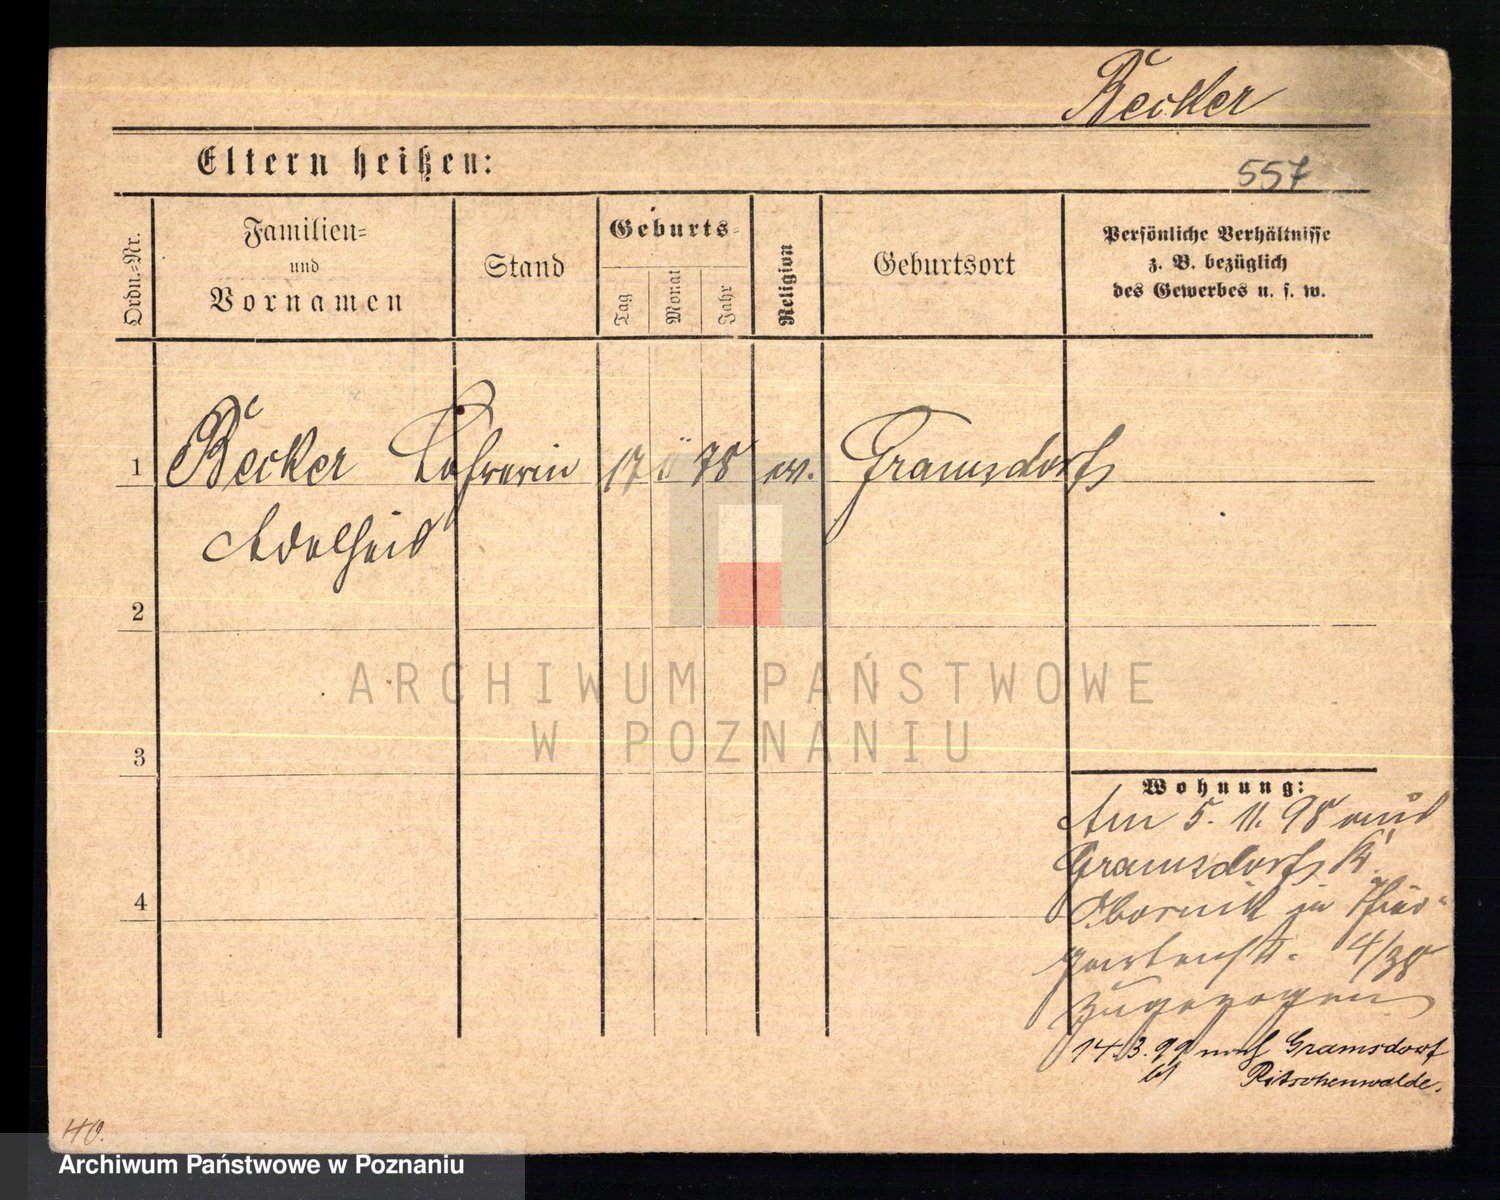 Becker
Eltern heißen:
557
Ordn.-Nr.
Familien-
und
Vornamen
Stand
Geburts-
Tag
Monat
Jahr
Religion
Geburtsort
Persönliche Verhältnisse
z. B. bezüglich
des Gewerbes u. s. w.
1
Becker Lehrerin 17 78 ev. Gramsdorf
Adelheid
2
ARCHIWUM PAŃSTWOWE
W POZNANIU
3
Wohnung:
Am 5. 11. 98 aus
Gramsdorf Kr.
4
Obornik in
4/38
zugezogen
14.3.99 nach Gramsdorf
bei Ritschenwalde.
40.
Archiwum Państwowe w Poznaniu